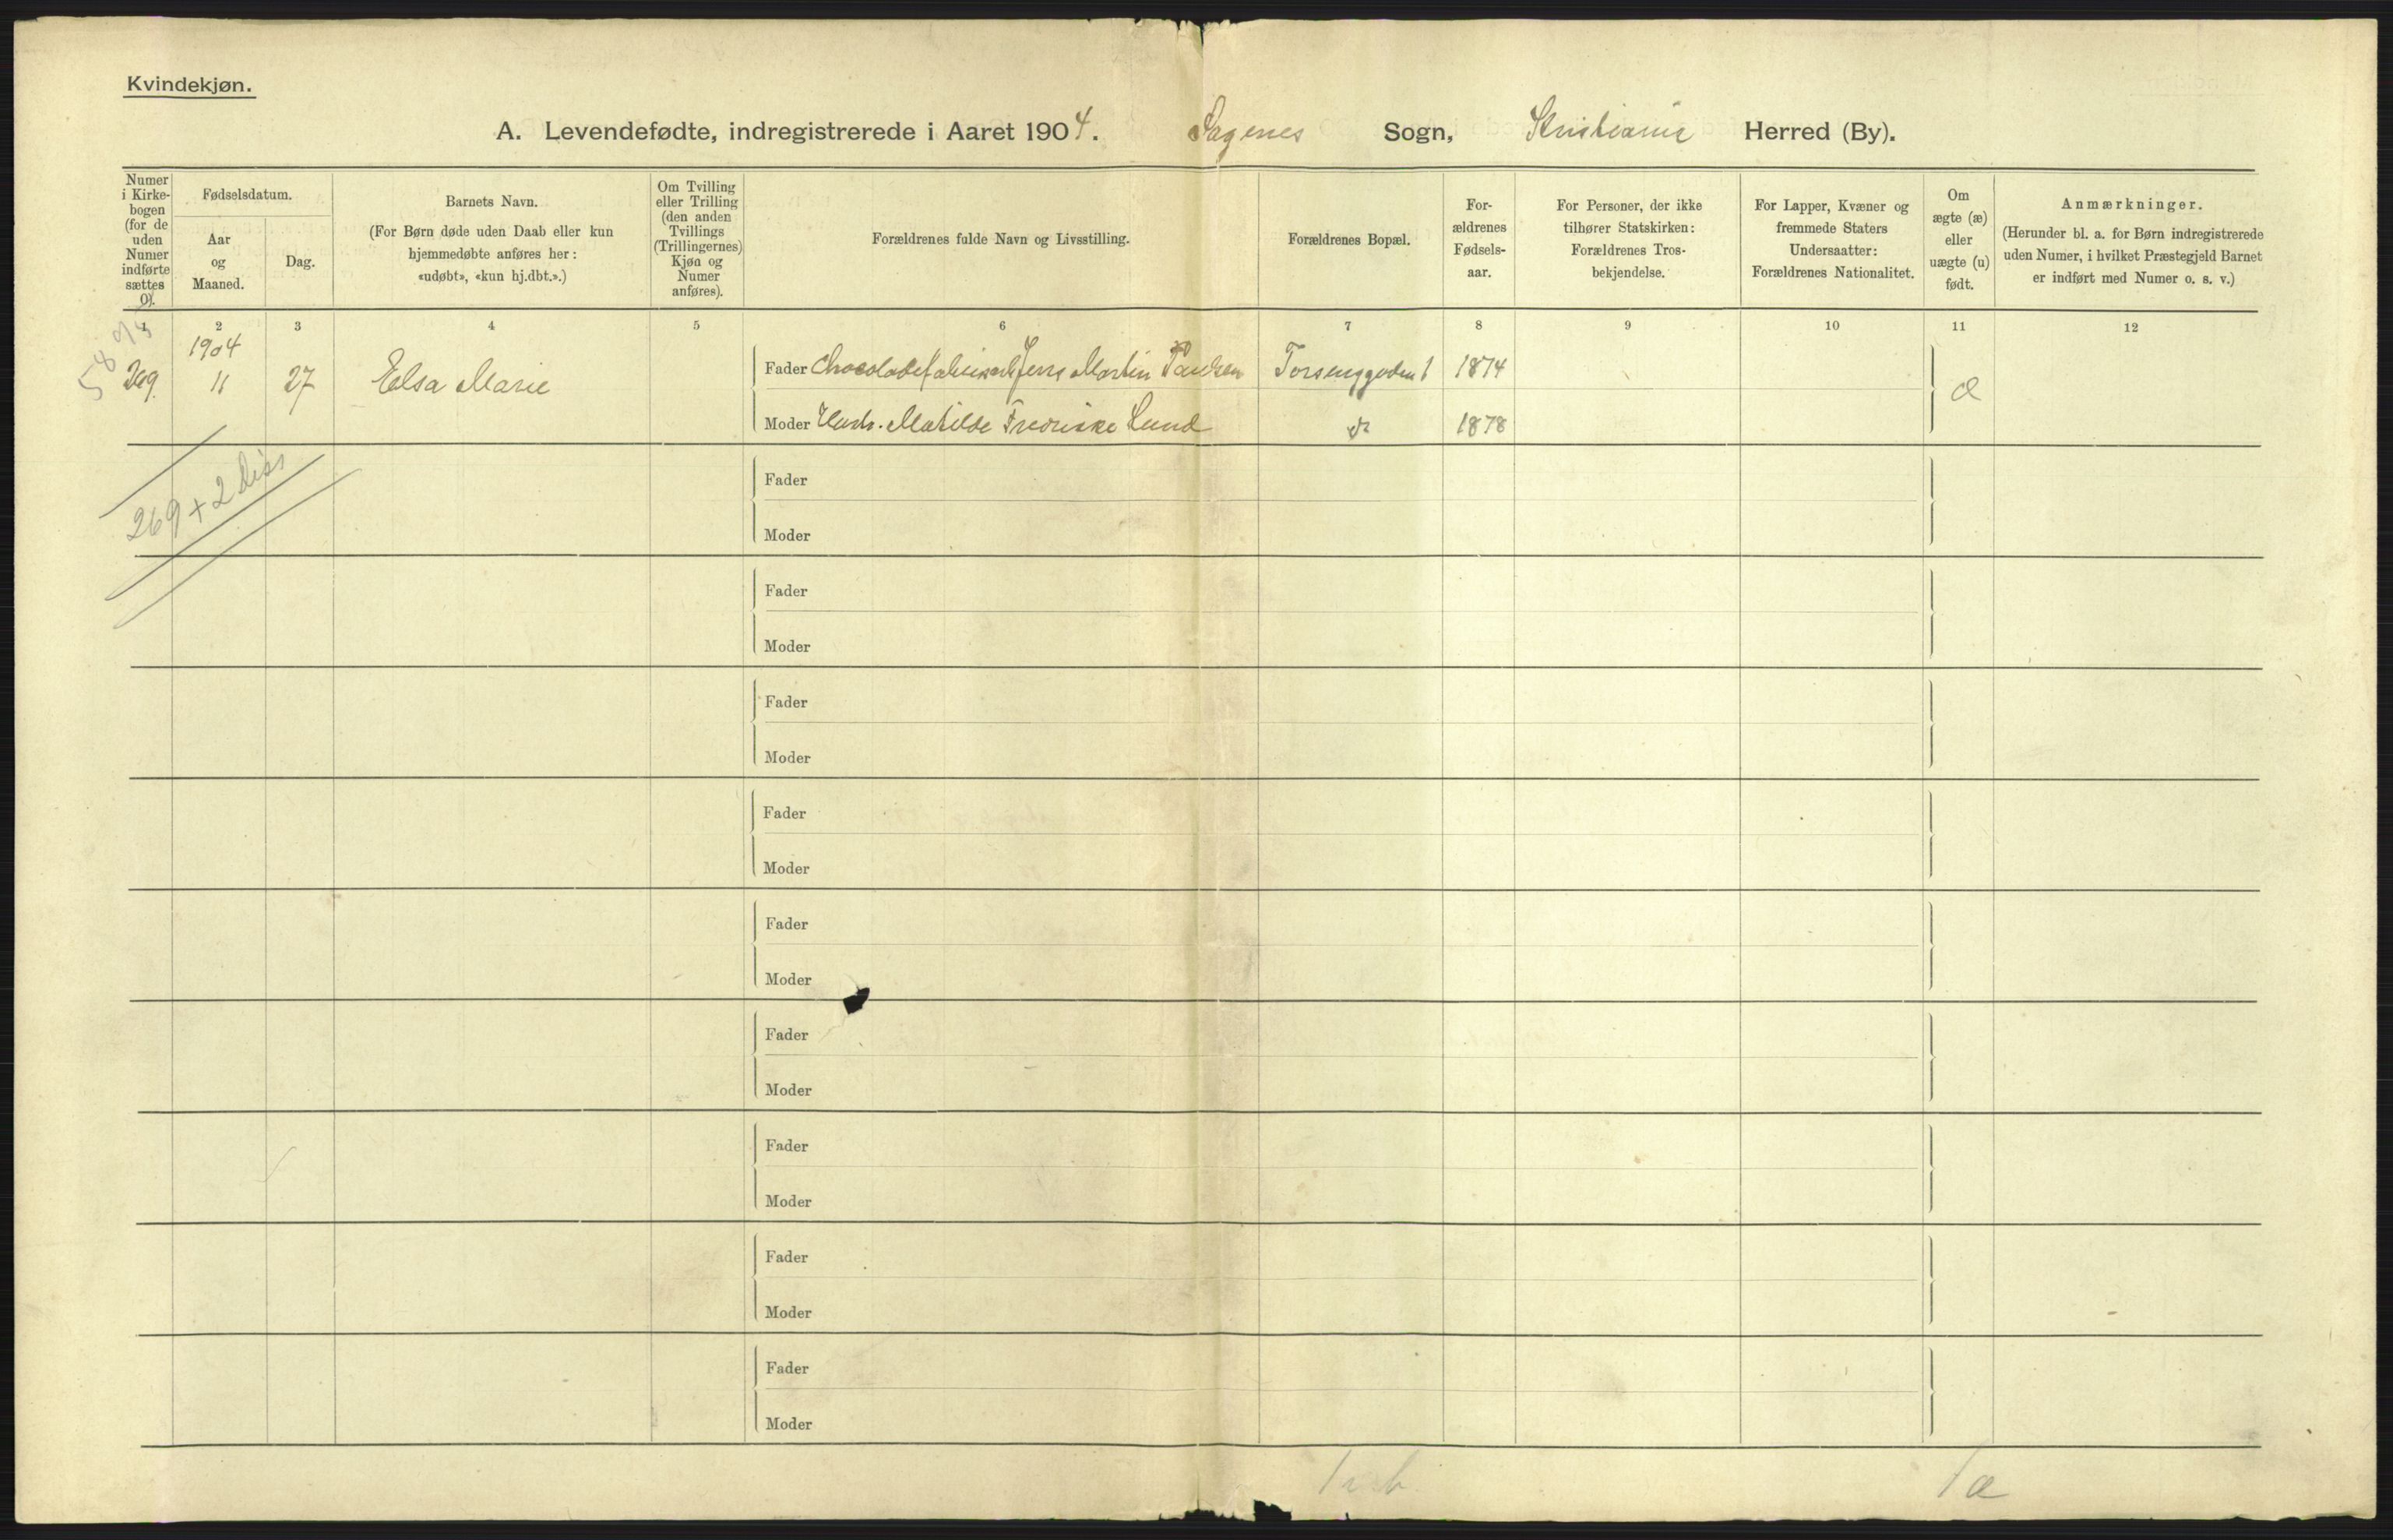 Kvindekjøn.
A. Levendefødte, indregistrerede i Aaret 1904. Sagenes Sogn, Kristiania Herred (By).
Numer i Kirke-bogen (for de uden Numer indførte sættes 0).
Fødselsdatum.
Aar og Maaned.
Dag.
Barnets Navn.
(For Børn døde uden Daab eller kun
hjemmedøbte anføres her:
«udøbt», «kun hj.dbt.».)
Om Tvilling
eller Trilling
(den anden
Tvillings
(Trillingernes)
Kjøn og
Numer
anføres).
Forældrenes fulde Navn og Livsstilling.
Forældrenes Bopæl.
For-
ældrenes
Fødsels-
aar.
For Personer, der ikke
tilhører Statskirken:
Forældrenes Tros-
bekjendelse.
For Lapper, Kvæner og
fremmede Staters
Undersaatter:
Forældrenes Nationalitet.
Om
ægte (æ)
eller
uægte (u)
født.
Anmærkninger.
(Herunder bl. a. for Børn indregistrerede
uden Numer, i hvilket Præstegjeld Barnet
er indført med Numer o. s. v.)
1 2 3 4 5 6 7 8 9 10 11 12
1904
269. 11 27 Elsa Marie
Fader Jens Martin Paulsen 1874
æ
Moder Hustr. Matilde Fredrikke Lund do 1878
269 + 2 diss
Fader
Moder
Fader
Moder
Fader
Moder
Fader
Moder
Fader
Moder
Fader
Moder
Fader
Moder
Fader
Moder
Fader
Moder
1 æ